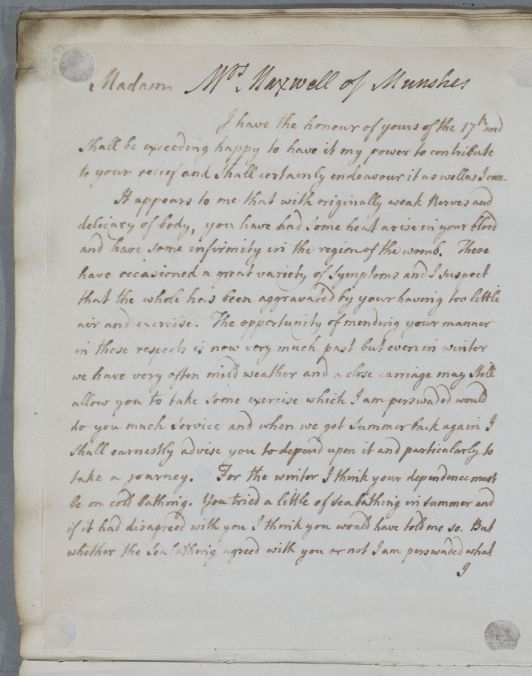 Madam Mrs Maxwell of Munshes
I have the honour of yours of the 17th and
Shall be exceeding happy to have it my power to contribute
to your relief and Shall certainly endeavour it as well as I can.
It appears to me that with originally weak Nerves and
delicacy of body, you have had some heat arise in your blood
and have some infirmity in the region of the womb. These
have occasioned a great variety of Symptoms and I suspect
that the whole has been aggravated by your having too little
air and exercise. The opportunity of mending your manner
in these respects is now very much past but even in winter
we have very often mild weather and a close carriage may still
allow you to take some exercise which I am perswaded would
do you much Service and when we get Summer back again I
Shall earnestly advise you to depend upon it and particularly to
take a journey. For the winter I think your dependence must
be on cold bathing. You tried a little of sea bathing in summer and
if it had disagreed with you I think you would have told me so. But
whether the Sea bathing agreed with you or not I am perswaded what
I